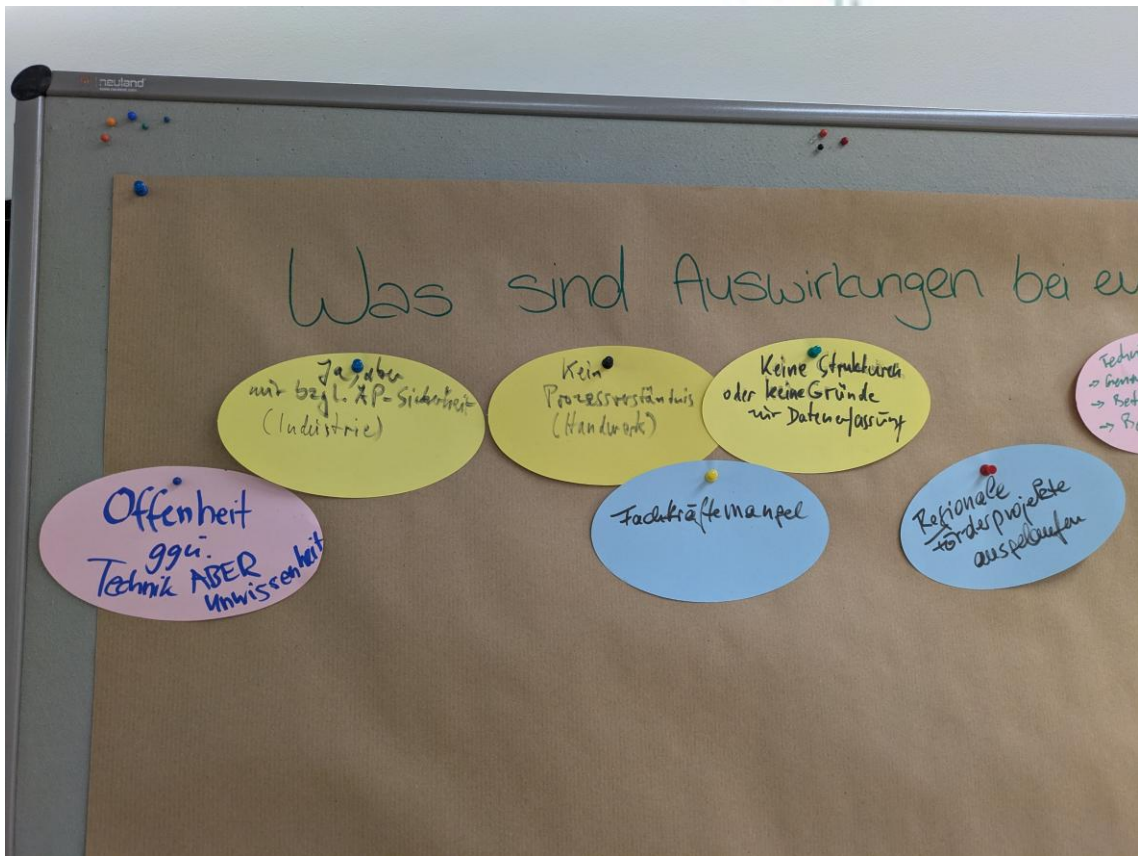 neuland
Was sind Auswirkungen bei eu
Ja, aber
nur bzgl. AP-Sicherheit
(Industrie)
Kein
Prozessverständnis
(Handwerk)
Keine Strukturen
oder keine Gründe
zur Datenerfassung
Offenheit
ggü.
Technik ABER
Unwissenheit
Fachkräftemangel
Regionale
Förderprojekte
ausgelaufen